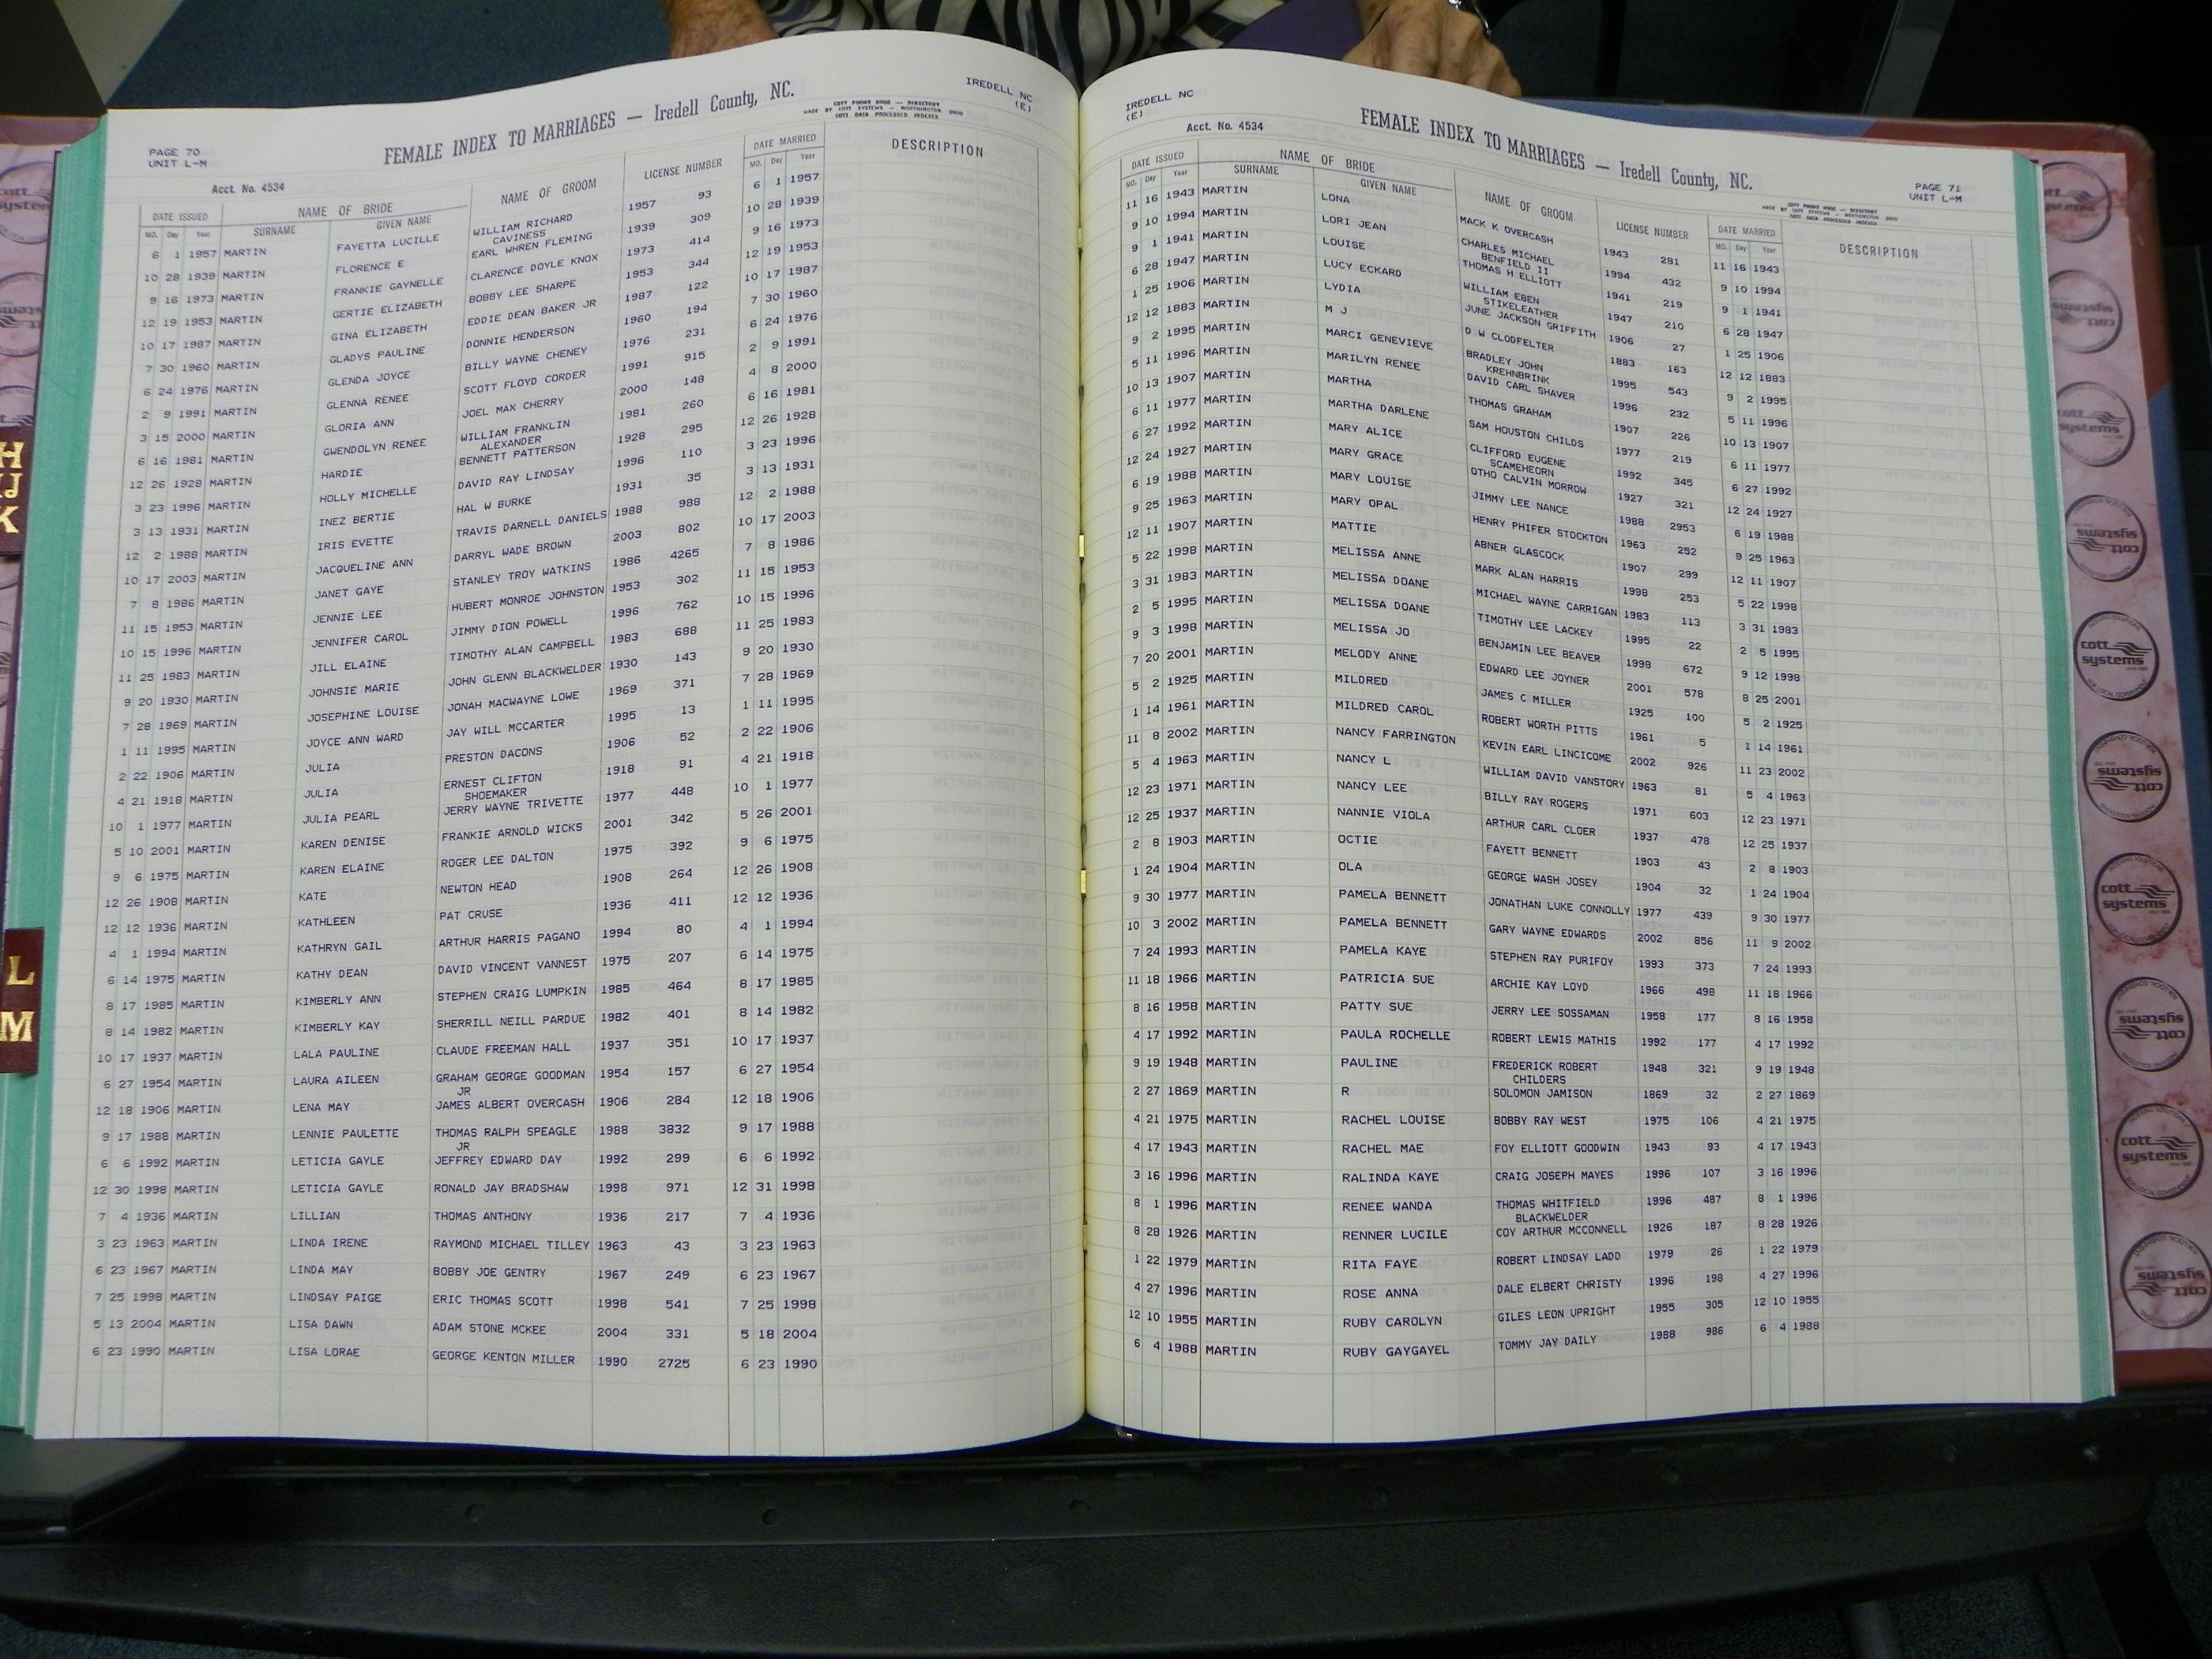 PAGE 70
UNIT L-M
FEMALE INDEX TO MARRIAGES — Iredell County, NC.
IREDELL NC
(E)
COTT PHONE DOGE — DIRECTORY
MADE BY COTT SYSTEMS — WORTHINGTON OHIO
COTT DATA PROCESSED INDEXES
Acct. No. 4534
DATE ISSUED NAME OF BRIDE NAME OF GROOM LICENSE NUMBER DATE MARRIED DESCRIPTION
MO. Day Year SURNAME GIVEN NAME MO. Day Year
6 1 1957 MARTIN FAYETTA LUCILLE WILLIAM RICHARD 1957 93 6 1 1957
CAVINESS
10 28 1939 MARTIN FLORENCE E EARL WHREN FLEMING 1939 309 10 28 1939
9 16 1973 MARTIN FRANKIE GAYNELLE CLARENCE DOYLE KNOX 1973 414 9 16 1973
12 19 1953 MARTIN GERTIE ELIZABETH BOBBY LEE SHARPE 1953 344 12 19 1953
10 17 1987 MARTIN GINA ELIZABETH EDDIE DEAN BAKER JR 1987 122 10 17 1987
7 30 1960 MARTIN GLADYS PAULINE DONNIE HENDERSON 1960 194 7 30 1960
6 24 1976 MARTIN GLENDA JOYCE BILLY WAYNE CHENEY 1976 231 6 24 1976
2 9 1991 MARTIN GLENNA RENEE SCOTT FLOYD CORDER 1991 915 2 9 1991
3 15 2000 MARTIN GLORIA ANN JOEL MAX CHERRY 2000 148 4 8 2000
6 16 1981 MARTIN GWENDOLYN RENEE WILLIAM FRANKLIN 1981 260 6 16 1981
ALEXANDER
12 26 1928 MARTIN HARDIE BENNETT PATTERSON 1928 295 12 26 1928
3 23 1996 MARTIN HOLLY MICHELLE DAVID RAY LINDSAY 1996 110 3 23 1996
3 13 1931 MARTIN INEZ BERTIE HAL W BURKE 1931 35 3 13 1931
12 2 1988 MARTIN IRIS EVETTE TRAVIS DARNELL DANIELS 1988 988 12 2 1988
10 17 2003 MARTIN JACQUELINE ANN DARRYL WADE BROWN 2003 802 10 17 2003
7 8 1986 MARTIN JANET GAYE STANLEY TROY WATKINS 1986 4265 7 8 1986
11 15 1953 MARTIN JENNIE LEE HUBERT MONROE JOHNSTON 1953 302 11 15 1953
10 15 1996 MARTIN JENNIFER CAROL JIMMY DION POWELL 1996 762 10 15 1996
11 25 1983 MARTIN JILL ELAINE TIMOTHY ALAN CAMPBELL 1983 688 11 25 1983
9 20 1930 MARTIN JOHNSIE MARIE JOHN GLENN BLACKWELDER 1930 143 9 20 1930
7 28 1969 MARTIN JOSEPHINE LOUISE JONAH MACWAYNE LOWE 1969 371 7 28 1969
1 11 1995 MARTIN JOYCE ANN WARD JAY WILL MCCARTER 1995 13 1 11 1995
2 22 1906 MARTIN JULIA PRESTON DACONS 1906 52 2 22 1906
4 21 1918 MARTIN JULIA ERNEST CLIFTON 1918 91 4 21 1918
SHOEMAKER
10 1 1977 MARTIN JULIA PEARL JERRY WAYNE TRIVETTE 1977 448 10 1 1977
5 10 2001 MARTIN KAREN DENISE FRANKIE ARNOLD WICKS 2001 342 5 26 2001
9 6 1975 MARTIN KAREN ELAINE ROGER LEE DALTON 1975 392 9 6 1975
12 26 1908 MARTIN KATE NEWTON HEAD 1908 264 12 26 1908
12 12 1936 MARTIN KATHLEEN PAT CRUSE 1936 411 12 12 1936
4 1 1994 MARTIN KATHRYN GAIL ARTHUR HARRIS PAGANO 1994 80 4 1 1994
6 14 1975 MARTIN KATHY DEAN DAVID VINCENT VANNEST 1975 207 6 14 1975
8 17 1985 MARTIN KIMBERLY ANN STEPHEN CRAIG LUMPKIN 1985 464 8 17 1985
8 14 1982 MARTIN KIMBERLY KAY SHERRILL NEILL PARDUE 1982 401 8 14 1982
10 17 1937 MARTIN LALA PAULINE CLAUDE FREEMAN HALL 1937 351 10 17 1937
6 27 1954 MARTIN LAURA AILEEN GRAHAM GEORGE GOODMAN 1954 157 6 27 1954
JR
12 18 1906 MARTIN LENA MAY JAMES ALBERT OVERCASH 1906 284 12 18 1906
9 17 1988 MARTIN LENNIE PAULETTE THOMAS RALPH SPEAGLE 1988 3832 9 17 1988
JR
6 6 1992 MARTIN LETICIA GAYLE JEFFREY EDWARD DAY 1992 299 6 6 1992
12 30 1998 MARTIN LETICIA GAYLE RONALD JAY BRADSHAW 1998 971 12 31 1998
7 4 1936 MARTIN LILLIAN THOMAS ANTHONY 1936 217 7 4 1936
3 23 1963 MARTIN LINDA IRENE RAYMOND MICHAEL TILLEY 1963 43 3 23 1963
6 23 1967 MARTIN LINDA MAY BOBBY JOE GENTRY 1967 249 6 23 1967
7 25 1998 MARTIN LINDSAY PAIGE ERIC THOMAS SCOTT 1998 541 7 25 1998
5 13 2004 MARTIN LISA DAWN ADAM STONE MCKEE 2004 331 5 18 2004
6 23 1990 MARTIN LISA LORAE GEORGE KENTON MILLER 1990 2725 6 23 1990
IREDELL NC
(E)
FEMALE INDEX TO MARRIAGES — Iredell County, NC.
PAGE 71
UNIT L-M
Acct. No. 4534
COTT PHONE DOGE — DIRECTORY
MADE BY COTT SYSTEMS — WORTHINGTON OHIO
COTT DATA PROCESSED INDEXES
DATE ISSUED NAME OF BRIDE NAME OF GROOM LICENSE NUMBER DATE MARRIED DESCRIPTION
MO. Day Year SURNAME GIVEN NAME MO. Day Year
11 16 1943 MARTIN LONA MACK K OVERCASH 1943 281 11 16 1943
9 10 1994 MARTIN LORI JEAN CHARLES MICHAEL 1994 432 9 10 1994
BENFIELD II
9 1 1941 MARTIN LOUISE THOMAS H ELLIOTT 1941 219 9 1 1941
6 28 1947 MARTIN LUCY ECKARD WILLIAM EBEN 1947 210 6 28 1947
STIKELEATHER
1 25 1906 MARTIN LYDIA JUNE JACKSON GRIFFITH 1906 27 1 25 1906
12 12 1883 MARTIN M J D W CLODFELTER 1883 163 12 12 1883
9 2 1995 MARTIN MARCI GENEVIEVE BRADLEY JOHN 1995 543 9 2 1995
KREHNBRINK
5 11 1996 MARTIN MARILYN RENEE DAVID CARL SHAVER 1996 232 5 11 1996
10 13 1907 MARTIN MARTHA THOMAS GRAHAM 1907 226 10 13 1907
6 11 1977 MARTIN MARTHA DARLENE SAM HOUSTON CHILDS 1977 219 6 11 1977
6 27 1992 MARTIN MARY ALICE CLIFFORD EUGENE 1992 345 6 27 1992
SCAMEHEORN
12 24 1927 MARTIN MARY GRACE OTHO CALVIN MORROW 1927 321 12 24 1927
6 19 1988 MARTIN MARY LOUISE JIMMY LEE NANCE 1988 2953 6 19 1988
9 25 1963 MARTIN MARY OPAL HENRY PHIFER STOCKTON 1963 252 9 25 1963
12 11 1907 MARTIN MATTIE ABNER GLASCOCK 1907 299 12 11 1907
5 22 1998 MARTIN MELISSA ANNE MARK ALAN HARRIS 1998 253 5 22 1998
3 31 1983 MARTIN MELISSA DOANE MICHAEL WAYNE CARRIGAN 1983 113 3 31 1983
2 5 1995 MARTIN MELISSA DOANE TIMOTHY LEE LACKEY 1995 22 2 5 1995
9 3 1998 MARTIN MELISSA JO BENJAMIN LEE BEAVER 1998 672 9 12 1998
7 20 2001 MARTIN MELODY ANNE EDWARD LEE JOYNER 2001 578 8 25 2001
5 2 1925 MARTIN MILDRED JAMES C MILLER 1925 100 5 2 1925
1 14 1961 MARTIN MILDRED CAROL ROBERT WORTH PITTS 1961 5 1 14 1961
11 8 2002 MARTIN NANCY FARRINGTON KEVIN EARL LINCICOME 2002 926 11 23 2002
5 4 1963 MARTIN NANCY L WILLIAM DAVID VANSTORY 1963 81 5 4 1963
12 23 1971 MARTIN NANCY LEE BILLY RAY ROGERS 1971 603 12 23 1971
12 25 1937 MARTIN NANNIE VIOLA ARTHUR CARL CLOER 1937 478 12 25 1937
2 8 1903 MARTIN OCTIE FAYETT BENNETT 1903 43 2 8 1903
1 24 1904 MARTIN OLA GEORGE WASH JOSEY 1904 32 1 24 1904
9 30 1977 MARTIN PAMELA BENNETT JONATHAN LUKE CONNOLLY 1977 439 9 30 1977
10 3 2002 MARTIN PAMELA BENNETT GARY WAYNE EDWARDS 2002 856 11 9 2002
7 24 1993 MARTIN PAMELA KAYE STEPHEN RAY PURIFOY 1993 373 7 24 1993
11 18 1966 MARTIN PATRICIA SUE ARCHIE KAY LOYD 1966 498 11 18 1966
8 16 1958 MARTIN PATTY SUE JERRY LEE SOSSAMAN 1958 177 8 16 1958
4 17 1992 MARTIN PAULA ROCHELLE ROBERT LEWIS MATHIS 1992 177 4 17 1992
9 19 1948 MARTIN PAULINE FREDERICK ROBERT 1948 321 9 19 1948
CHILDERS
2 27 1869 MARTIN R SOLOMON JAMISON 1869 32 2 27 1869
4 21 1975 MARTIN RACHEL LOUISE BOBBY RAY WEST 1975 106 4 21 1975
4 17 1943 MARTIN RACHEL MAE FOY ELLIOTT GOODWIN 1943 93 4 17 1943
3 16 1996 MARTIN RALINDA KAYE CRAIG JOSEPH MAYES 1996 107 3 16 1996
8 1 1996 MARTIN RENEE WANDA THOMAS WHITFIELD 1996 487 8 1 1996
BLACKWELDER
8 28 1926 MARTIN RENNER LUCILE COY ARTHUR MCCONNELL 1926 187 8 28 1926
1 22 1979 MARTIN RITA FAYE ROBERT LINDSAY LADD 1979 26 1 22 1979
4 27 1996 MARTIN ROSE ANNA DALE ELBERT CHRISTY 1996 198 4 27 1996
12 10 1955 MARTIN RUBY CAROLYN GILES LEON UPRIGHT 1955 305 12 10 1955
6 4 1988 MARTIN RUBY GAYGAYEL TOMMY JAY DAILY 1988 986 6 4 1988
H
IJ
K
L
M
cott
systems
FOR LOCAL GOVERNMENT
cott
systems
cott
systems
cott
systems